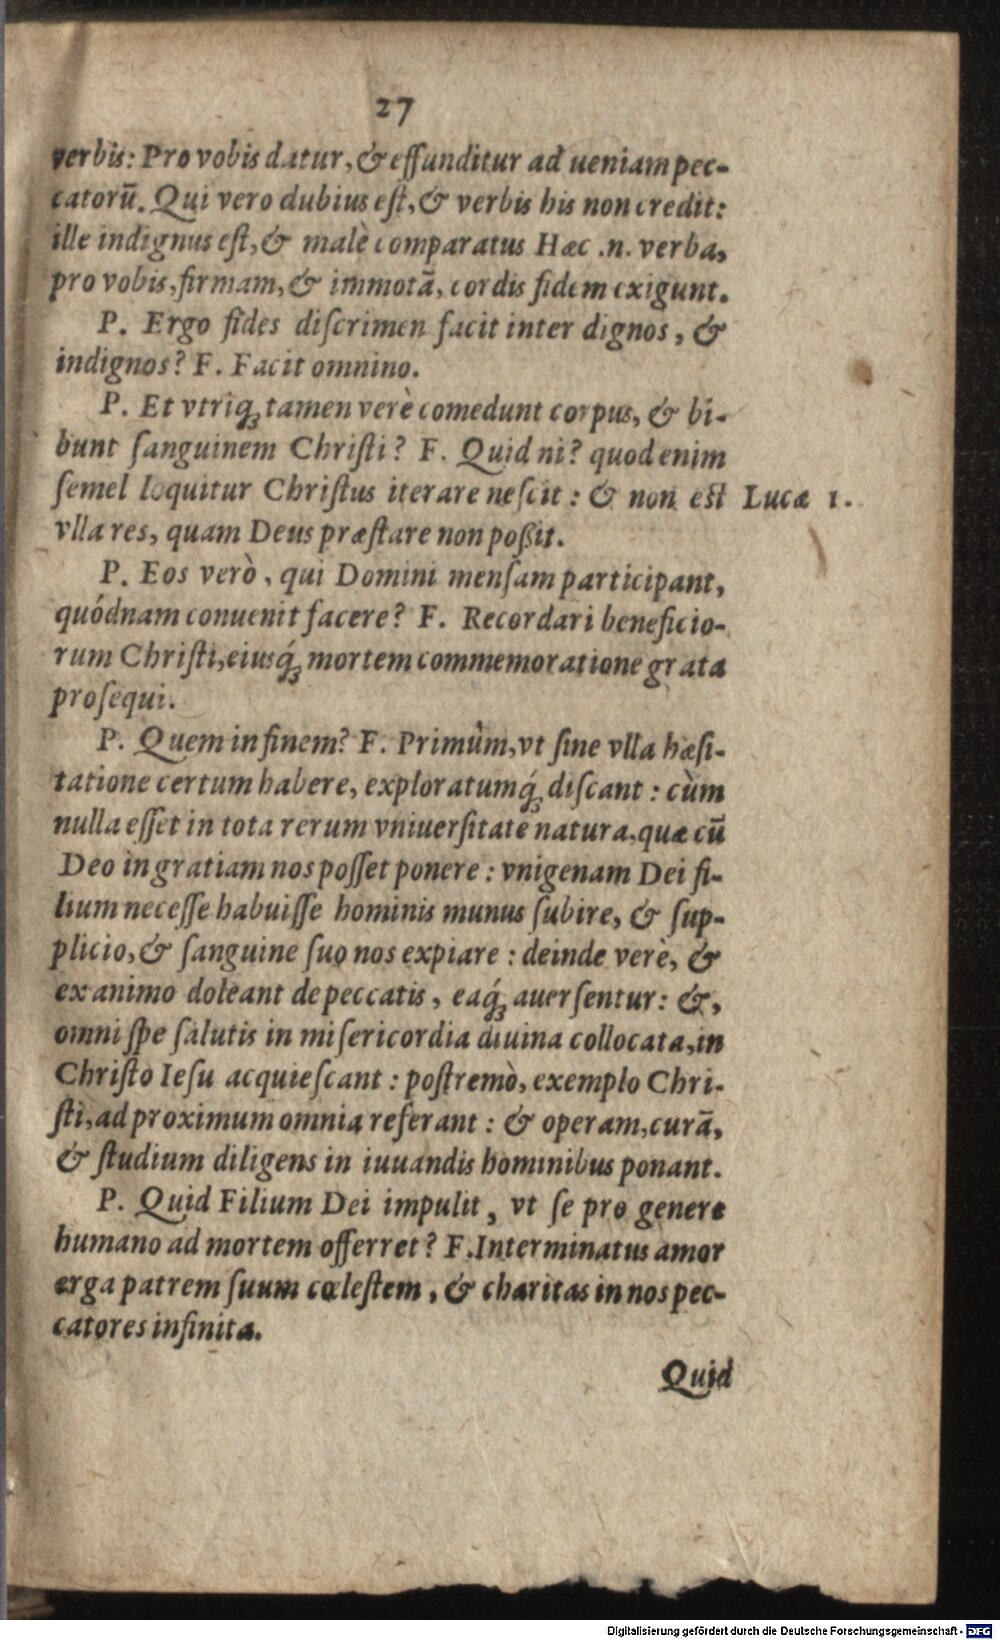 27
verbis: Pro vobis datur, & effunditur ad ueniam pec-
catorū. Qui vero dubius eſt, & verbis his non credit:
ille indignus eſt, & malè comparatus Hæc .n. verba,
pro vobis, firmam, & immotā, cordis fidem exigunt.
P. Ergo fides diſcrimen facit inter dignos, &
indignos? F. Facit omnino.
P. Et vtriqꝫ tamen verè comedunt corpus, & bi-
bunt ſanguinem Chriſti? F. Quid ni? quod enim
ſemel loquitur Chriſtus iterare neſcit: & non eſt Lucæ 1.
vlla res, quam Deus præſtare non poßit.
P. Eos verò, qui Domini menſam participant,
quódnam conuenit facere? F. Recordari beneficio-
rum Chriſti, eiusq́ꝫ mortem commemoratione grata
proſequi.
P. Quem in finem? F. Primùm, vt ſine vlla hæſi-
tatione certum habere, exploratumq́ꝫ diſcant: cùm
nulla eſſet in tota rerum vniuerſitate natura, quæ cū
Deo in gratiam nos poſſet ponere: vnigenam Dei fi-
lium neceſſe habuiſſe hominis munus ſubire, & ſup-
plicio, & ſanguine ſuo nos expiare: deinde verè, &
ex animo doleant de peccatis, eaq́ꝫ auerſentur: &,
omni ſpe ſalutis in miſericordia diuina collocata, in
Chriſto Ieſu acquieſcant: poſtremò, exemplo Chri-
ſti, ad proximum omnia referant: & operam, curā,
& ſtudium diligens in iuuandis hominibus ponant.
P. Quid Filium Dei impulit, vt ſe pro genere
humano ad mortem offerret? F. Interminatus amor
erga patrem ſuum cœleſtem, & charitas in nos pec-
catores infinita.
Quid
Digitalisierung gefördert durch die Deutsche Forschungsgemeinschaft - DFG